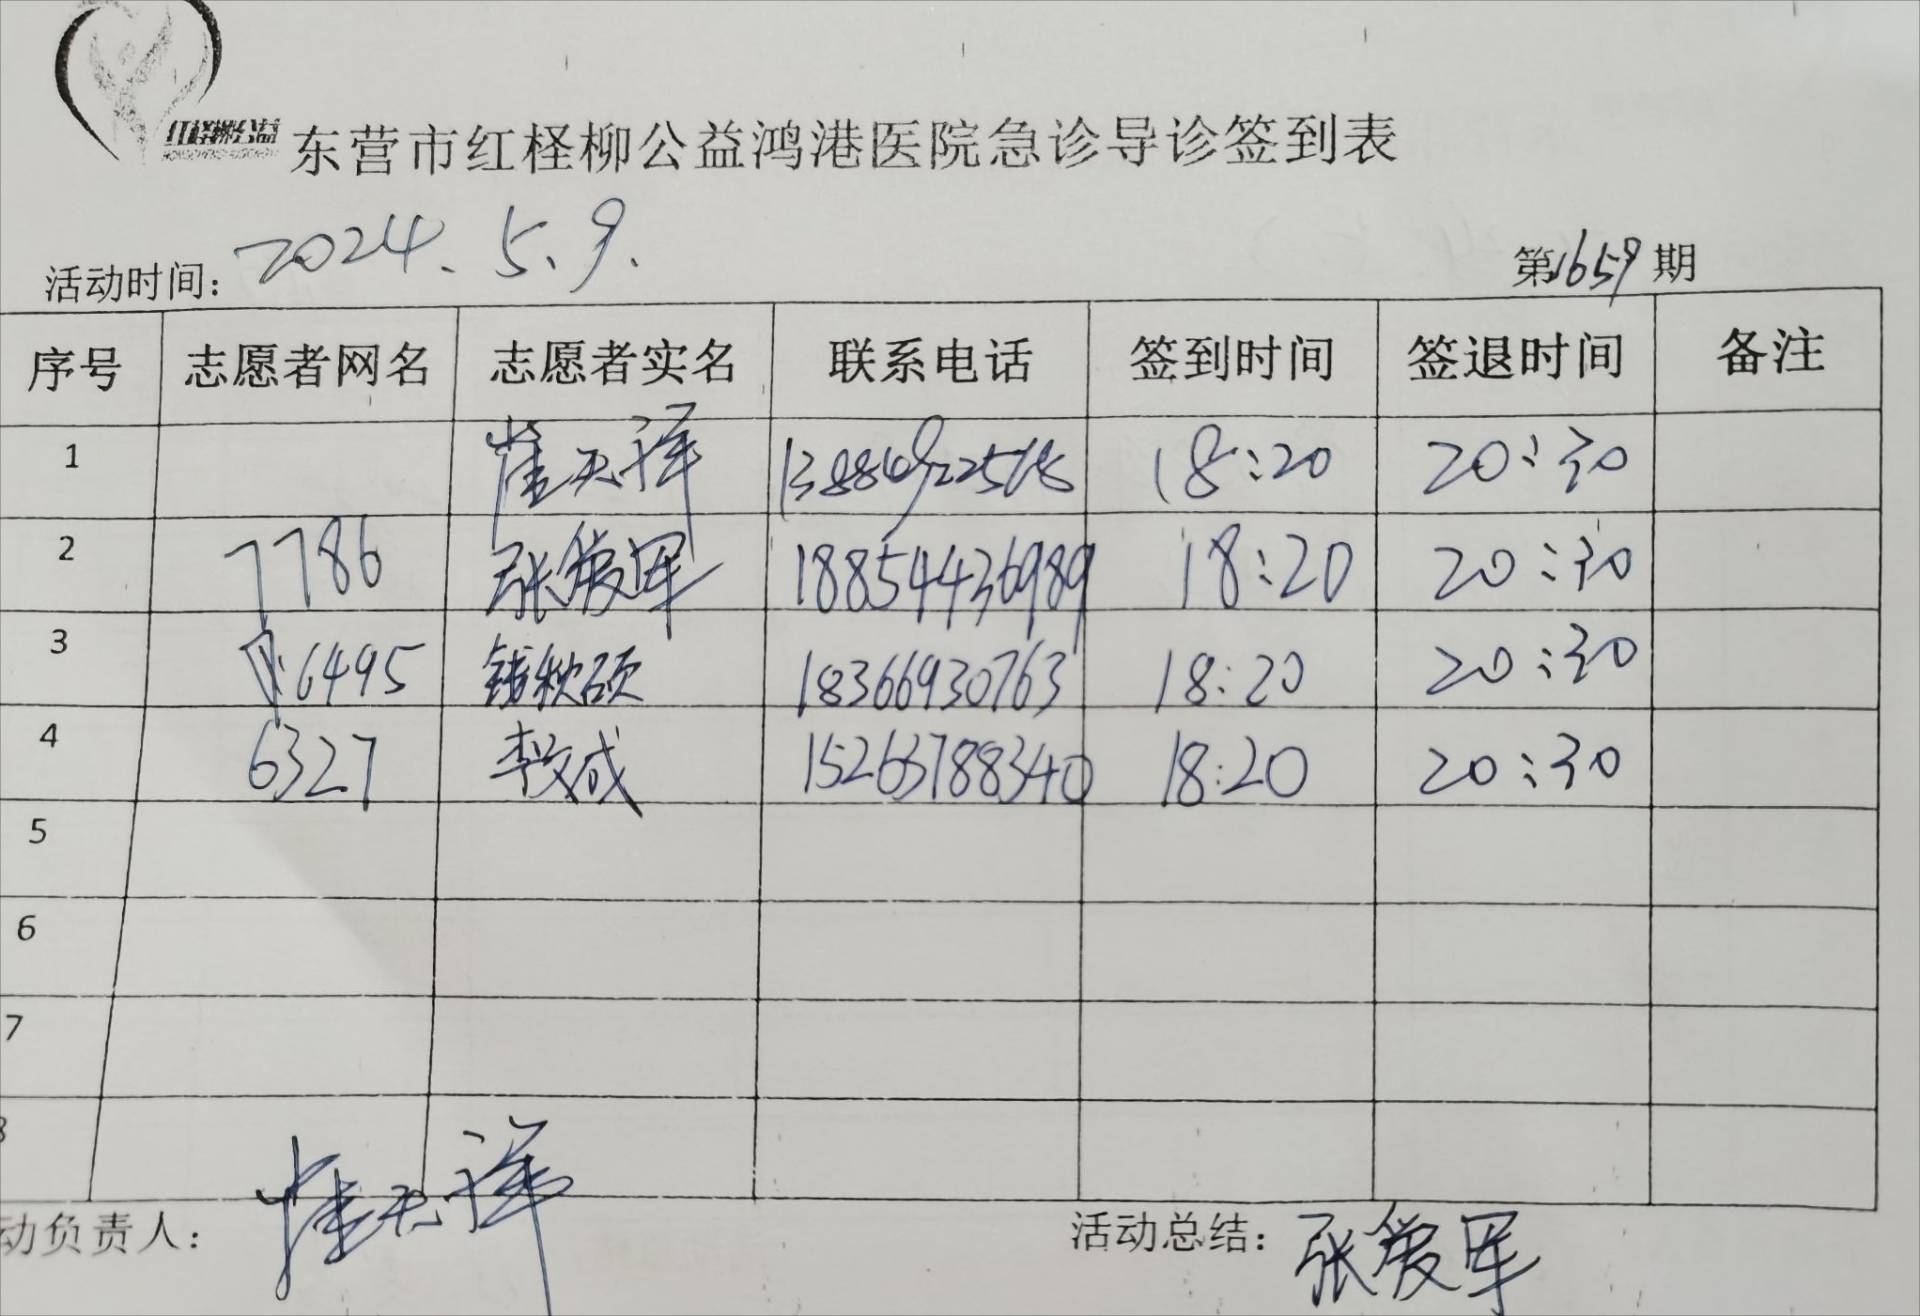 红柽柳公益
东营市红柽柳公益鸿港医院急诊导诊签到表
活动时间: 2024.5.9. 第1659期
序号 志愿者网名 志愿者实名 联系电话 签到时间 签退时间 备注
1 崔天洋 18:20 20:30
2 7786 张爱军 18854436989 18:20 20:30
3 6495 钱秋硕 18366930763 18:20 20:30
4 6327 李文成 15263788340 18:20 20:30
5
6
7
8
动负责人: 崔天洋 活动总结: 张爱军